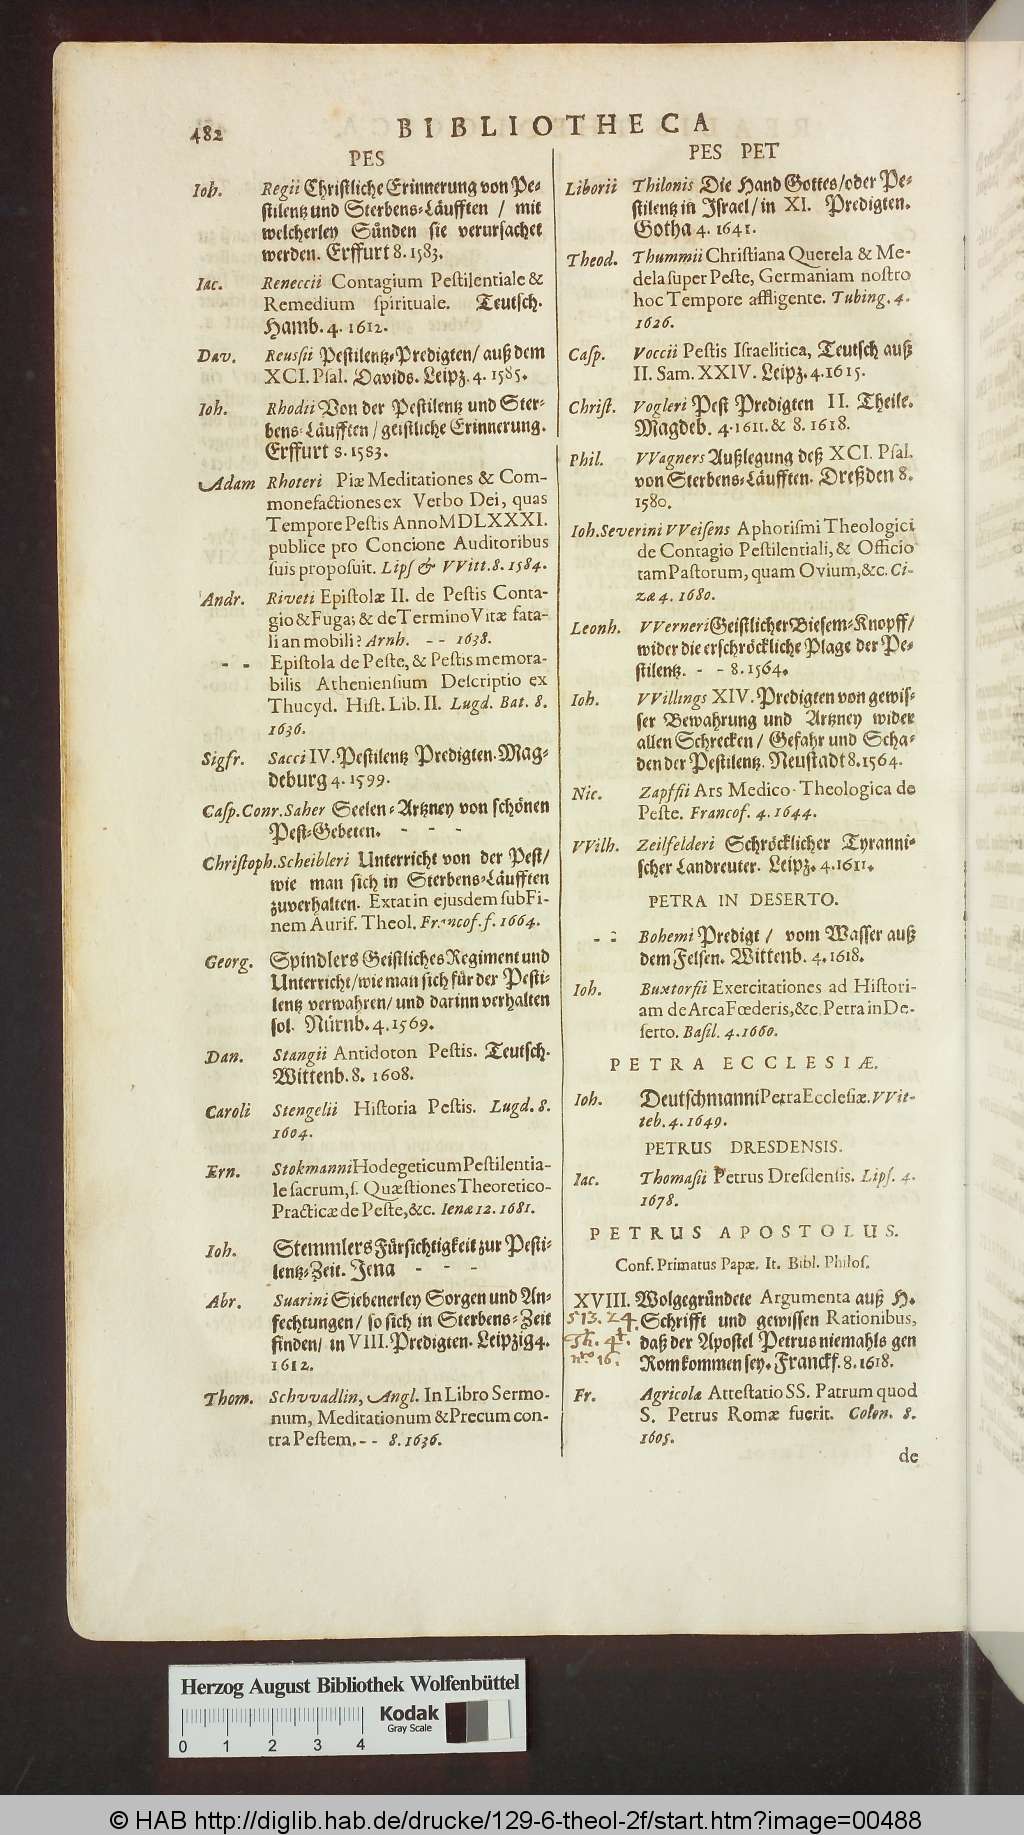 482
BIBLIOTHECA
PES
Ioh. Regii Christliche Erinnerung von Pe-
stilentz und Sterbens-Läufften / mit
welcherley Sünden sie verursachet
werden. Erffurt 8. 1583.
Iac. Reneccii Contagium Pestilentiale &
Remedium spirituale. Teutsch.
Hamb. 4. 1612.
Dav. Reussii Pestilentz-Predigten / auß dem
XCI. Psal. Davids. Leipz. 4. 1585.
Ioh. Rhodii Von der Pestilentz und Ster-
bens-Läufften / geistliche Erinnerung.
Erffurt 8. 1583.
Adam Rhoteri Piæ Meditationes & Com-
monefactiones ex Verbo Dei, quas
Tempore Pestis Anno MDLXXXI.
publice pro Concione Auditoribus
suis proposuit. Lips & VVitt. 8. 1584.
Andr. Riveti Epistolæ II. de Pestis Conta-
gio & Fuga; & de Termino Vitæ fata-
li an mobili? Arnh. - - 1638.
- - Epistola de Peste, & Pestis memora-
bilis Atheniensium Descriptio ex
Thucyd. Hist. Lib. II. Lugd. Bat. 8.
1636.
Sigfr. Sacci IV. Pestilentz Predigten. Mag-
deburg 4. 1599.
Casp. Conr. Saher Seelen-Artzney von schönen
Pest-Gebeten. - - -
Christoph. Scheibleri Unterricht von der Pest /
wie man sich in Sterbens-Läufften
zuverhalten. Extat in ejusdem sub Fi-
nem Aurif. Theol. Francof. f. 1664.
Georg. Spindlers Geistliches Regiment und
Unterricht / wie man sich für der Pesti-
lentz verwahren / und darinn verhalten
sol. Nürnb. 4. 1569.
Dan. Stangii Antidoton Pestis. Teutsch.
Wittenb. 8. 1608.
Caroli Stengelii Historia Pestis. Lugd. 8.
1604.
Ern. Stokmanni Hodegeticum Pestilentia-
le sacrum, s. Quæstiones Theoretico-
Practicæ de Peste, &c. Ienæ 12. 1681.
Ioh. Stemmlers Fürsichtigkeit zur Pesti-
lentz-Zeit. Jena - - -
Abr. Suarini Siebenerley Sorgen und An-
fechtungen / so sich in Sterbens-Zeit
finden / in VIII. Predigten. Leipzig 4.
1612.
Thom. Schvvadlin, Angl. In Libro Sermo-
num, Meditationum & Precum con-
tra Pestem. - - 8. 1636.
PES PET
Liborii Thilonis Die Hand Gottes / oder Pe-
stilentz in Israel / in XI. Predigten.
Gotha 4. 1641.
Theod. Thummii Christiana Querela & Me-
dela super Peste, Germaniam nostro
hoc Tempore affligente. Tubing. 4.
1626.
Casp. Voccii Pestis Israelitica, Teutsch auß
II. Sam. XXIV. Leipz. 4. 1615.
Christ. Vogleri Pest Predigten II. Theile.
Magdeb. 4. 1611. & 8. 1618.
Phil. VVagners Außlegung deß XCI. Psal.
von Sterbens-Läufften. Dreßden 8.
1580.
Ioh. Severini VVeisens Aphorismi Theologici
de Contagio Pestilentiali, & Officio
tam Pastorum, quam Ovium, &c. Ci-
zæ 4. 1680.
Leonh. VVerneri Geistlicher Biesem-Knopff /
wider die erschröckliche Plage der Pe-
stilentz. - - 8. 1564.
Ioh. VVillings XIV. Predigten von gewis-
ser Bewahrung und Artzney wider
allen Schrecken / Gefahr und Scha-
den der Pestilentz. Neustadt 8. 1564.
Nic. Zapfsii Ars Medico-Theologica de
Peste. Francof. 4. 1644.
VVilh. Zeilfelderi Schröcklicher Tyranni-
scher Landreuter. Leipz. 4. 1611.
PETRA IN DESERTO.
- - Bohemi Predigt / vom Wasser auß
dem Felsen. Wittenb. 4. 1618.
Ioh. Buxtorfii Exercitationes ad Histori-
am de Arca Fœderis, &c. Petra in De-
serto. Basil. 4. 1660.
PETRA ECCLESIÆ.
Ioh. Deutschmanni Petra Ecclesiæ. VVit-
teb. 4. 1649.
PETRUS DRESDENSIS.
Iac. Thomasii Petrus Dresdensis. Lips. 4.
1678.
PETRUS APOSTOLUS.
Conf. Primatus Papæ. It. Bibl. Philos.
XVIII. Wolgegründete Argumenta auß H.
513. 24. Schrifft und gewissen Rationibus,
Th. 4t. daß der Apostel Petrus niemahls gen
nro 16. Rom kommen sey. Franckf. 8. 1618.
Fr. Agricolæ Attestatio SS. Patrum quod
S. Petrus Romæ fuerit. Colon. 8.
1605.
de
Herzog August Bibliothek Wolfenbüttel
0 1 2 3 4
Kodak
Gray Scale
© HAB http://diglib.hab.de/drucke/129-6-theol-2f/start.htm?image=00488